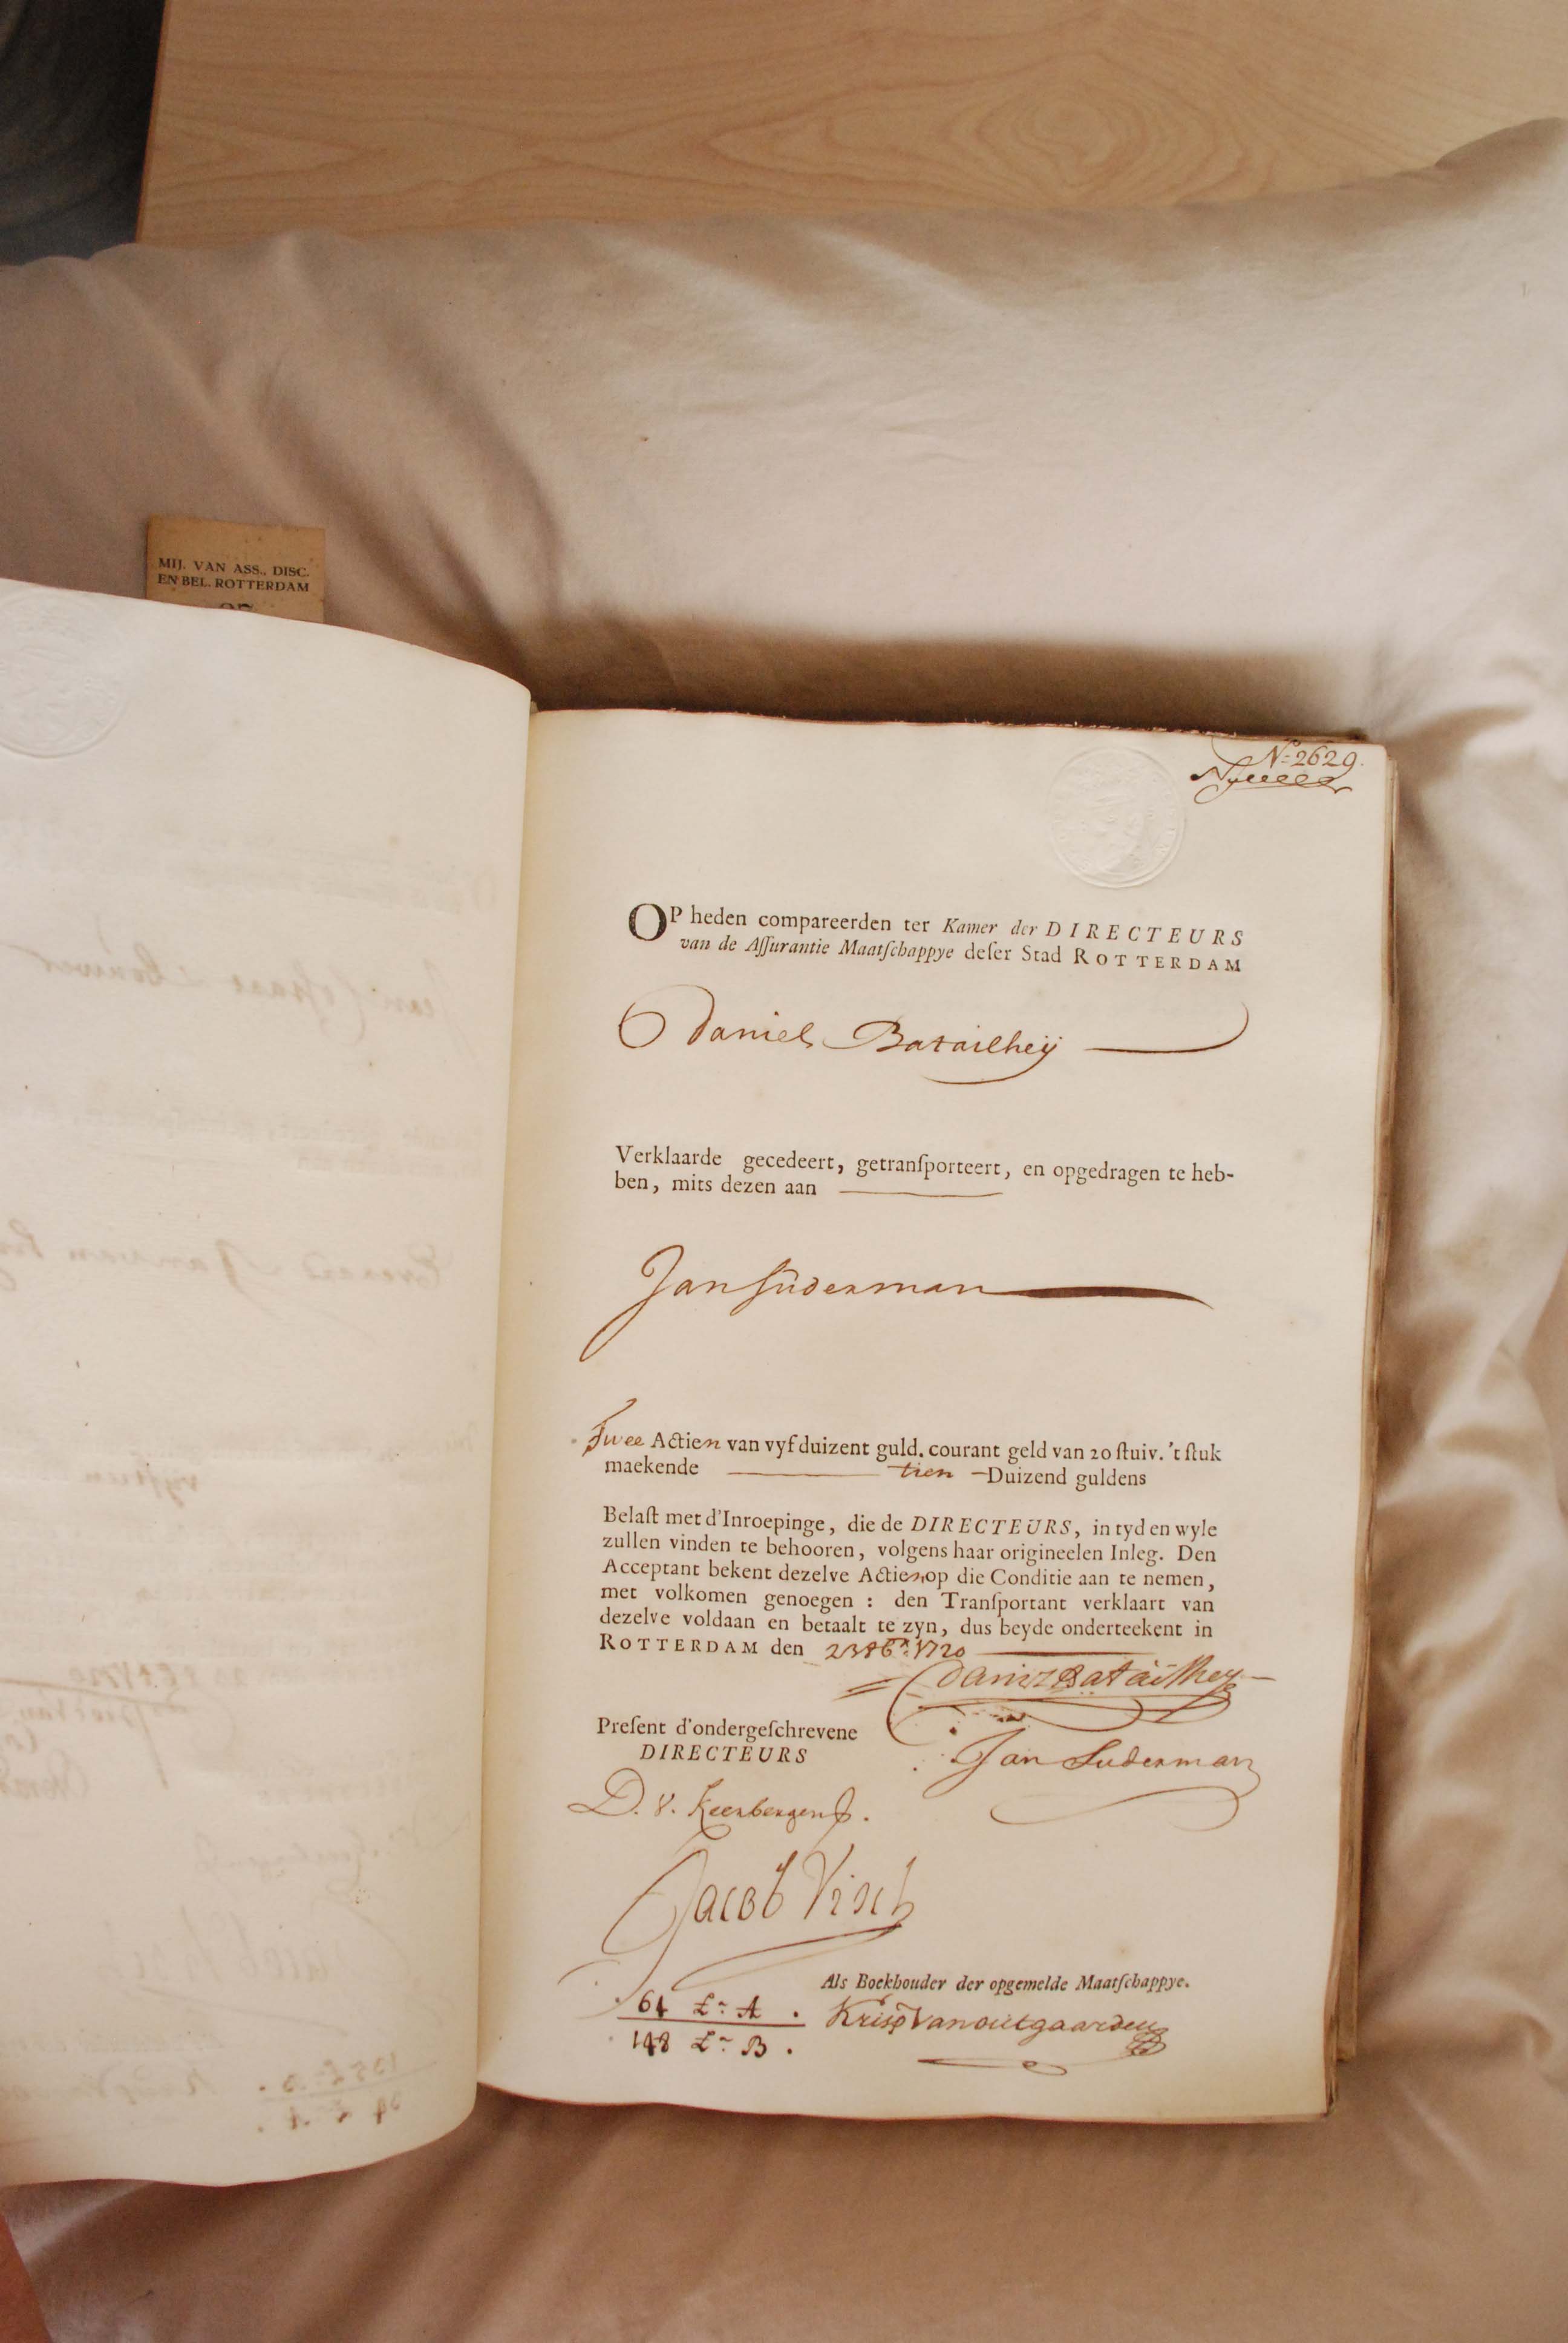 MIJ. VAN ASS., DISC.
EN BEL. ROTTERDAM
Nº 2629.
OP heden compareerden ter Kamer der DIRECTEURS
van de Aſſurantie Maatſchappye deſer Stad ROTTERDAM
Daniel Batailheij
Verklaarde gecedeert, getranſporteert, en opgedragen te heb-
ben, mits dezen aan
Jan Süderman
Twee Actien van vyf duizent guld. courant geld van 20 ſtuiv. 't ſtuk
maekende tien Duizend guldens
Belaſt met d'Inroepinge, die de DIRECTEURS, in tyd en wyle
zullen vinden te behooren, volgens haar origineelen Inleg. Den
Acceptant bekent dezelve Actien op die Conditie aan te nemen,
met volkomen genoegen : den Tranſportant verklaart van
dezelve voldaan en betaalt te zyn, dus beyde onderteekent in
ROTTERDAM den 23 1720
Daniel Batailhey
Preſent d'ondergeſchrevene
DIRECTEURS
Jan Suderman
D. V. Keerbergen
Jacob Visch
Als Boekhouder der opgemelde Maatſchappye.
64 Lr A.
Krisp Vanoutgaarden
148 Lr B.